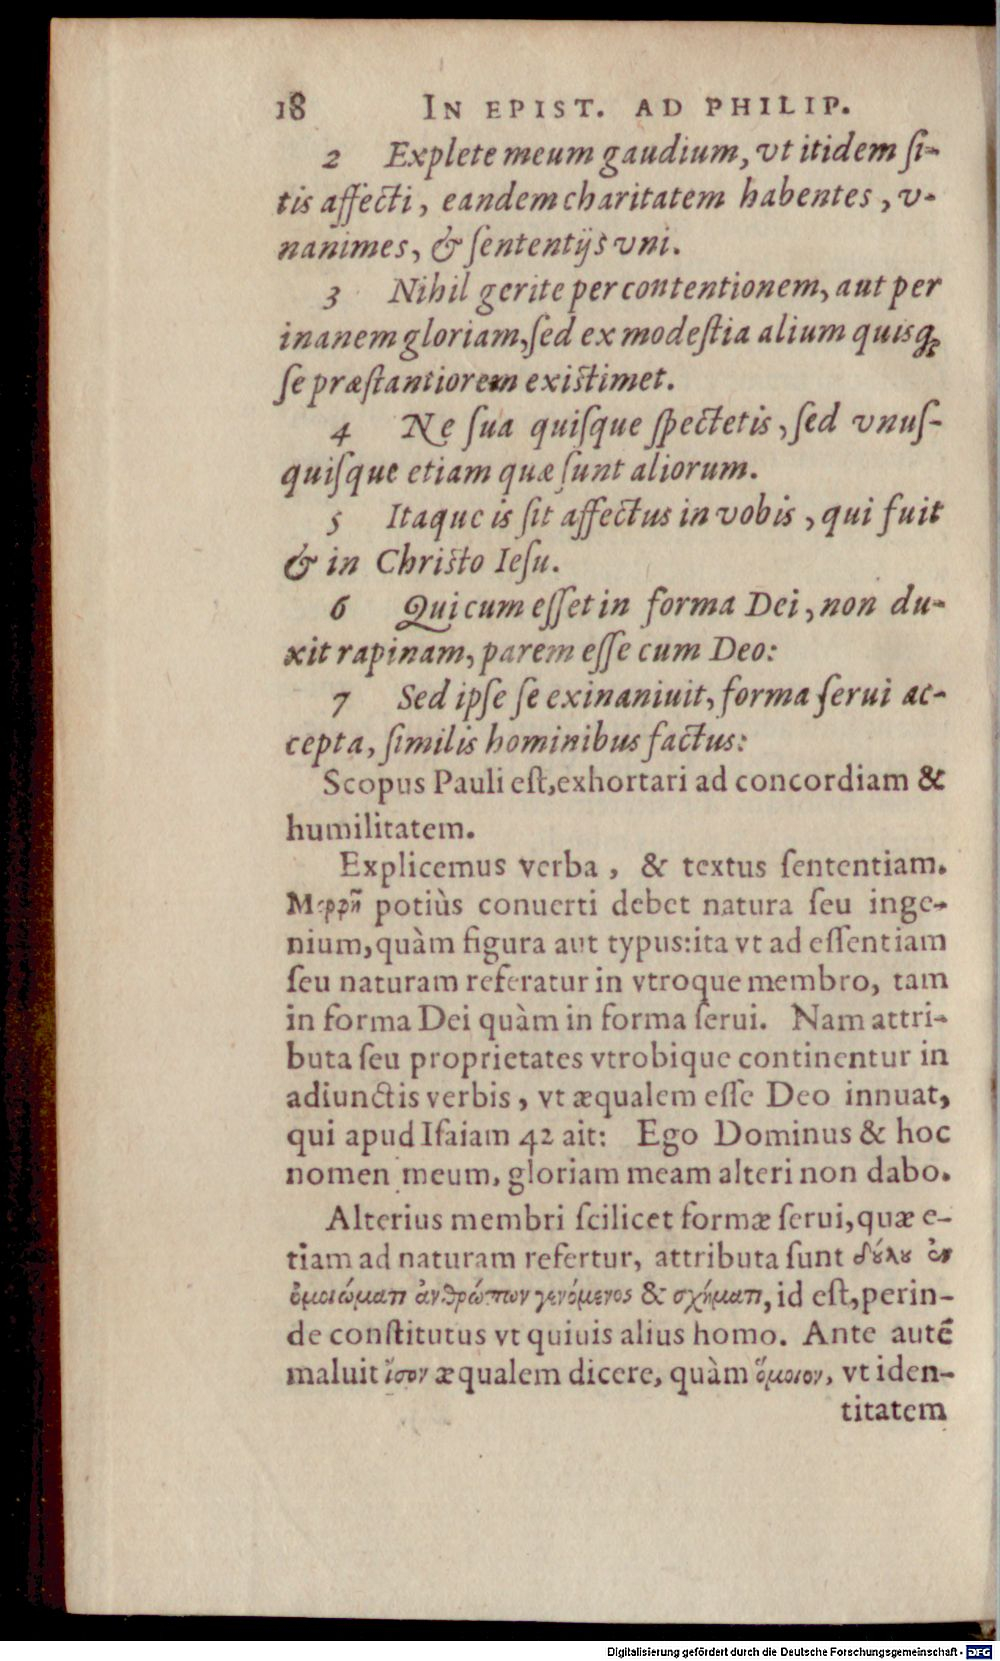 18 IN EPIST. AD PHILIP.
2 Explete meum gaudium, vt itidem ſi-
tis affecti, eandem charitatem habentes, v-
nanimes, & ſententijs vni.
3 Nihil gerite per contentionem, aut per
inanem gloriam, ſed ex modeſtia alium quisq;
ſe præſtantiorem existimet.
4 Ne ſua quiſque ſpectetis, ſed vnuſ-
quiſque etiam quæ ſunt aliorum.
5 Itaque is ſit affectus in vobis, qui fuit
& in Christo Ieſu.
6 Qui cum eſſet in forma Dei, non du-
xit rapinam, parem eſſe cum Deo:
7 Sed ipſe ſe exinaniuit, forma ſerui ac-
cepta, ſimilis hominibus factus:
Scopus Pauli eſt, exhortari ad concordiam &
humilitatem.
Explicemus verba, & textus ſententiam.
Μορφὴ potiùs conuerti debet natura ſeu inge-
nium, quàm figura aut typus: ita vt ad eſſentiam
ſeu naturam referatur in vtroque membro, tam
in forma Dei quàm in forma ſerui. Nam attri-
buta ſeu proprietates vtrobique continentur in
adiunctis verbis, vt æqualem eſſe Deo innuat,
qui apud Iſaiam 42 ait: Ego Dominus & hoc
nomen meum, gloriam meam alteri non dabo.
Alterius membri ſcilicet formæ ſerui, quæ e-
tiam ad naturam refertur, attributa ſunt δούλου ἐν
ὁμοιώματι ἀνθρώπων γενόμενος & σχήματι, id eſt, perin-
de conſtitutus vt quiuis alius homo. Ante autē
maluit ἴσον æqualem dicere, quàm ὅμοιον, vt iden-
titatem
Digitalisierung gefördert durch die Deutsche Forschungsgemeinschaft - DFG